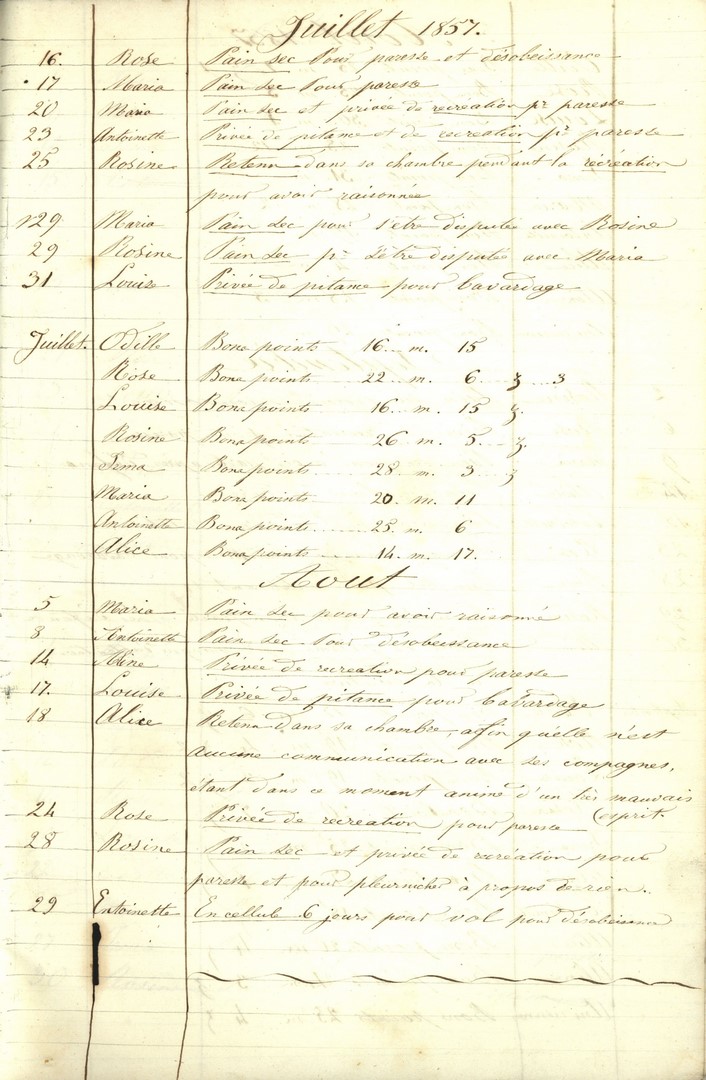 Juillet 1857.
16. Rose Pain sec pour paresse et désobeissance
17 Maria Pain sec pour paresse
20 Maria Pain sec et privée de recreation pr paresse
23 Antoinette Privée de pitance et de recréation pr paresse
25 Rosine Retenu dans sa chambre pendant la récréation
pour avoir raisonnée
29 Maria Pain sec pour s'être disputée avec Rosine
29 Rosine Pain sec pr s'être disputée avec Maria
31 Louise Privée de pitance pour bavardage
Juillet. Odille Bons points 16 .. m. 15
Rose Bons points 22 .. m. 6 3 .. 3
Louise Bons points 16. m. 15 3.
Rosine Bons points 26 m. 5. 3.
Irma Bons points 28. m. 3 3
Maria Bons points 20. m. 11
Antoinette Bons points 25. m. 6
Alice Bons points 14. m. 17.
Aout
5 Maria Pain sec pour avoir raisonné
8 Antoinette Pain sec pour désobeissance
14 Privée de recreation pour paresse
17. Louise Privée de pitance pour bavardage
18 Alice Retenu dans sa chambre, afin qu'elle n'est
aucune communication avec ses compagnes,
étant dans ce moment animé d'un très mauvais
(esprit.
24 Rose Privée de recreation pour paresse
28 Rosine Pain sec et privée de recréation pour
paresse et pour pleurnicher à propos de rien.
29 Entoinette En cellule 6 jours pour vol pour désobeissance